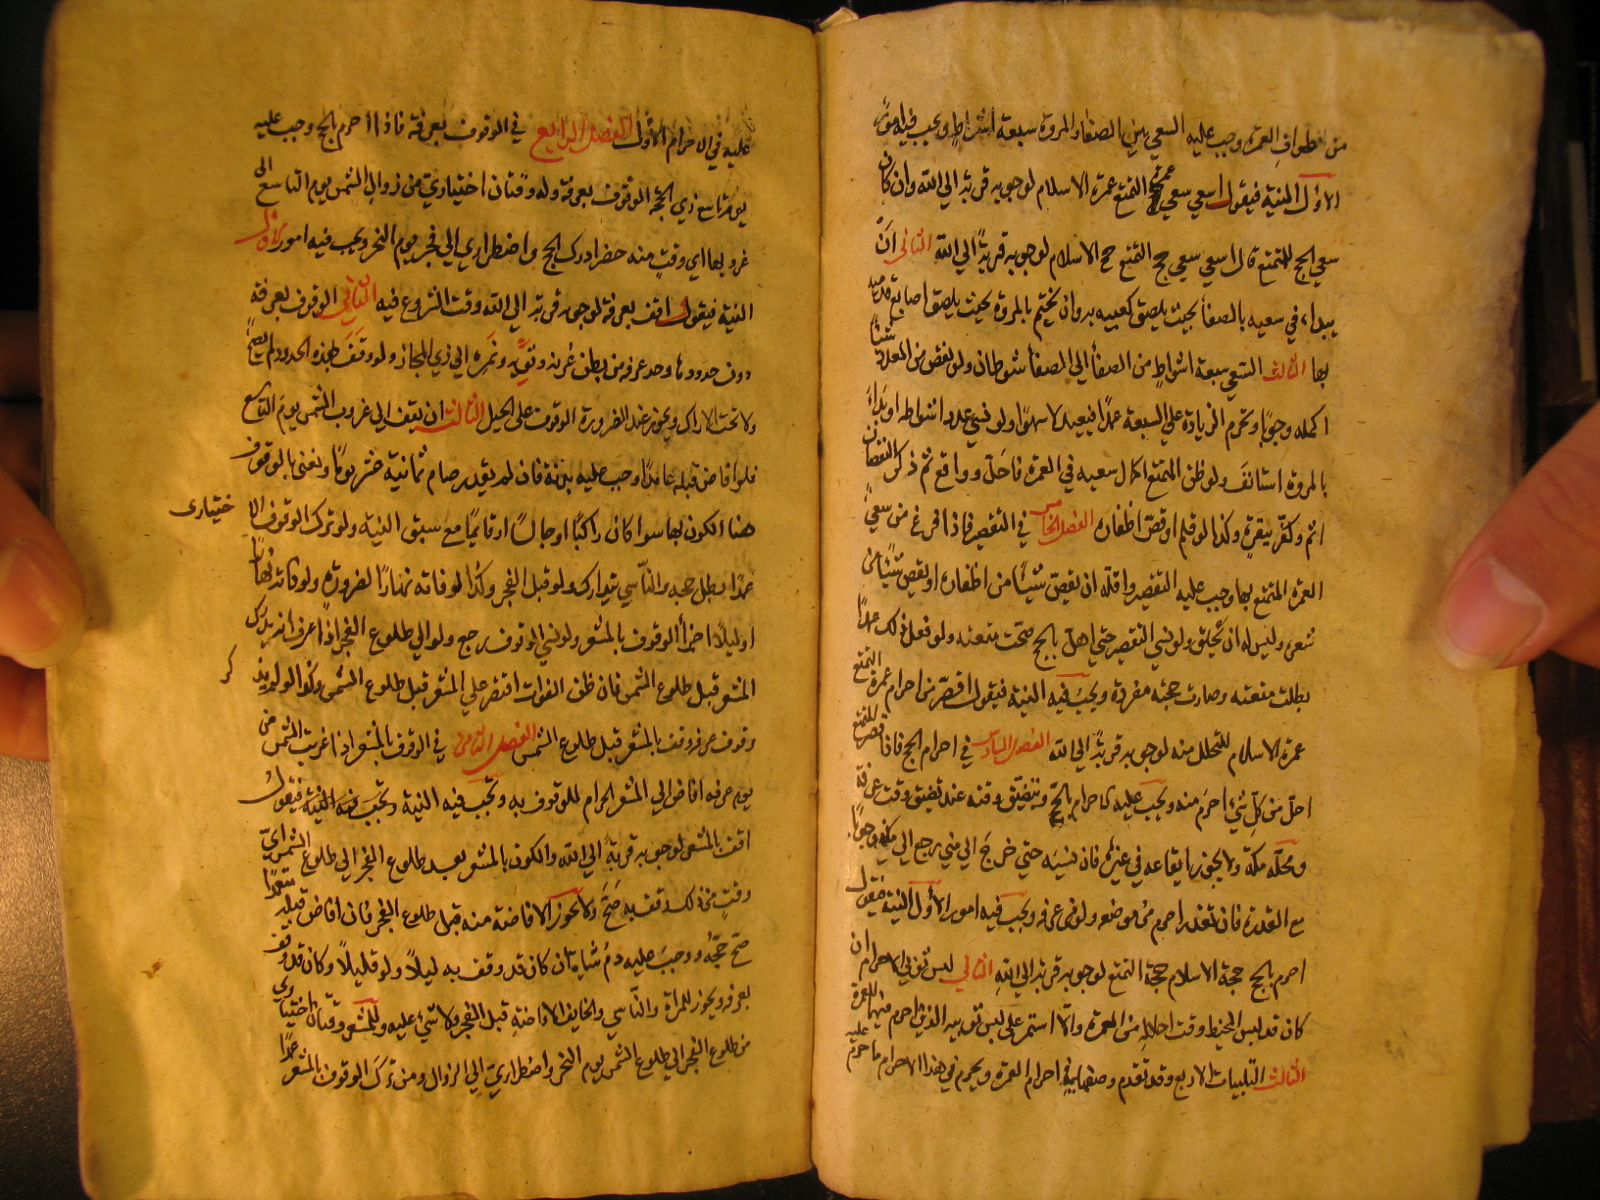 من طواف العمرة وجب عليه السعي بين الصفا والمروة سبعة اشواط ويجب فيه امور
الاول النية فيقول اسعي سعي عمرة التمتع عمرة الاسلام لوجوبه قربة الي الله وان كان
سعي الحج للتمتع قال اسعي سعي حج التمتع حج الاسلام لوجوبه قربةً الي الله الثاني انْ
يبداء في سعيه بالصفا بحيث يلصق كعبيه به وان يختم بالمروة بحيث يلصق اصابع قدميه
بها الثالث السعي سبعة اشواطٍ من الصفا الي الصفا شوطان ولو نقص من المعدد شيئا
اكمله وجوبًا وتحرم الزيادة علي السبعة عمدًا فيعيد لا سهوًا ولو نسي عدد اشواطه او بداءَ
بالمروة استانفَ ولو ظن المتمتع اكمال سعيه في العمرة فاحلّ وواقع ثم ذكر النقصان
اتم وكفّر ببقرةٍ وكذا لو قلم او قصّ اظفاره الفصل الخامس في التقصير فاذا فرغ من سعي
العمرة المتمتع بها وجب عليه التقصير واقله ان يقصّ شيئًا من اظفاره او يقص شيئًا من
شعره وليس له ان يُحلق ولو نسي التقصير حتي اهلّ بالحج صحّت متعته ولو فعل ذلك عمدًا
بطلت متعته وصارت حجته مفردة ويجب فيه النية فيقول اقصّر من احرام عمرة التمتع
عمرة الاسلام للتحلل منه لوجوبه قربةً الي الله الفصل السادس في احرام الحج فاذا قصر المتمتع
احلّ من كل شيءٍ احرم منه ويجب عليه الاحرام بالحجّ ويتضيّق وقته عند تضيق وقت عرفة
ومحلّه مكّة ولا يجوز ايقاعه في غيرها فان نسيَه حتي خرج الي مني رجع الي مكة وجوبًا
مع القدرة فان تعذر احرم من موضعه ولو في عرفه ويجب فيه امور الاول النية فيقول
احرم بالحج حجة الاسلام حجة التمتع لوجوبه قربة الي الله الثاني لبس ثوبي الاحرام ان
كان قد لبس المخيط وقت احلاله من العمرة والّا استمر علي لبس ثوبيه الذين احرم فيهما للعمرة
الثالث التلبيات الاربع وقد تقدم وصفها في احرام العمرة ويحرم في هذا الاحرام ما حرم عليه
عليه في الاحرام الاول الفصل الرابع في الوقوف بعرفة فاذا احرم بالحج وجب عليه
يوم تاسع ذي الحجّة الوقوف بعرفة وله وقتان اختياريّ من زوال الشمس يوم التاسع الي
غروبها اي وقت منه حضر ادرك الحج واضطراري الي فجر يوم النحر ويجب فيه امور الاول
النية فيقول اقف بعرفة لوجوبه قربة الي الله وقت الشروع فيه الثاني الوقوف بعرفة
دون حدودها وحد عرفه من بطن عُرنه وثويّه ونمره الي ذي المجاز ولو وقفَ بهذه الحدود لم يصحّ
ولا تحت الاراك ويجوز عند الضرورة الوقوف علي الجبل الثالث ان يقف الي غروب الشمس يوم التاسع
فلو افاض قبله عامدًا وجب عليه بدنة فان لم يقدر صام ثمانية عشر يومًا ونعني بالوقوف
هنا الكون بها سوا كان راكبًا او جالسًا او قايمًا مع سبق النية ولو ترك الوقوف الا
ختياری
عمدًا بطل حجه والنّاسي يتدارك ولو قبل الفجر وكذا لو فاته نهارًا لضرورة ولو فاته نهارًا
او ليلًا اجزأ الوقوف بالمشعر ولو نسي الوقوف رجع ولو الي طلوع الفجر اذا عرف انه يدرك
المشعر قبل طلوع الشمس فان ظن الفوات اقتصر علي المشعر قبل طلوع الشمس وكذا لو لم يذكر
وقوف عرفه وقف بالمشعر قبل طلوع الشمس الفصل الثامن في الوقوف بالمشعر اذا غربت الشمس من
يوم عرفه افاض الي المشعر الحرام للوقوف به وتجب فيه النية ويجب فيه النية فيقول
اقف بالمشعر لوجوبه قربةً الي الله والكون بالمشعر بعد طلوع الفجر الي طلوع الشمس ايّ
وقتٍ من ذلك وقف به صحَّ ولا يجوز الافاضة منه قبل طلوع الفجر فان افاض قبله متعمدًا
صح حجّهُ ووجبَ عليه دمُ شاةٍ ان كان قد وقف به ليلًا ولو قليلًا وكان قد وقف
بعرفه ويجوز للمراة والنّاسي والخايف الافاضة قبل الفجر ولا شيء عليه وللمشعر وقتان اختياري
من طلوع الفجر الي طلوع الشمس يوم النحر واضطراريّ الي الزوال ومن تركَ الوقوف بالمشعر عمدًا